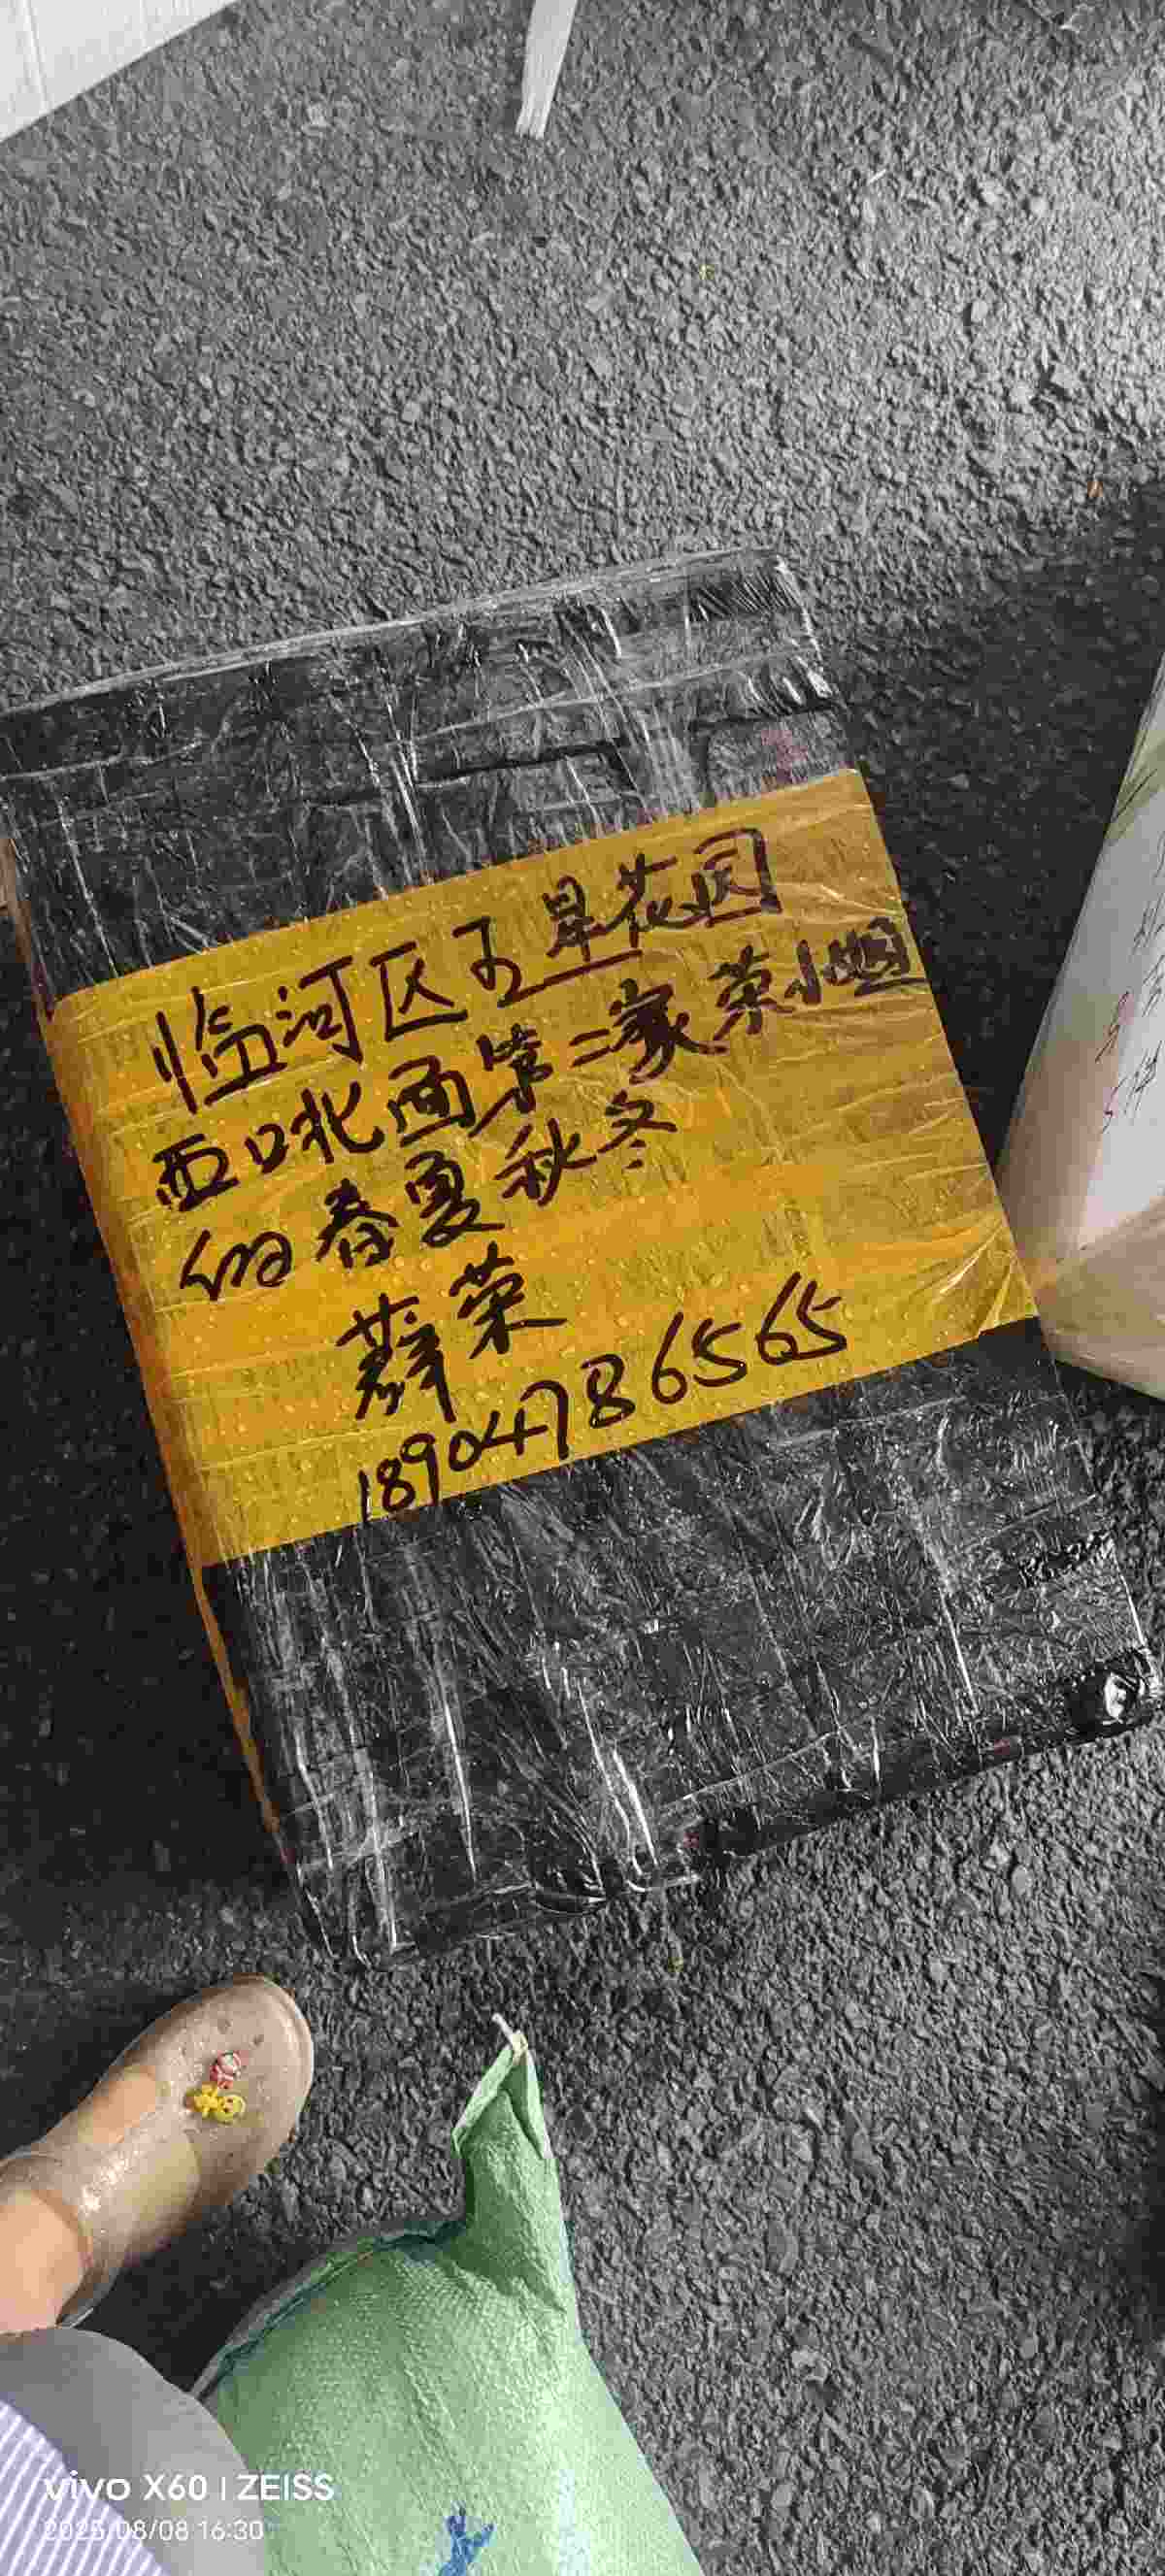 临河区五星花园
西口北面第二家荣小姐
的春夏秋冬
薛荣
18904786565
vivo X60 | ZEISS
2025/08/08 16:30